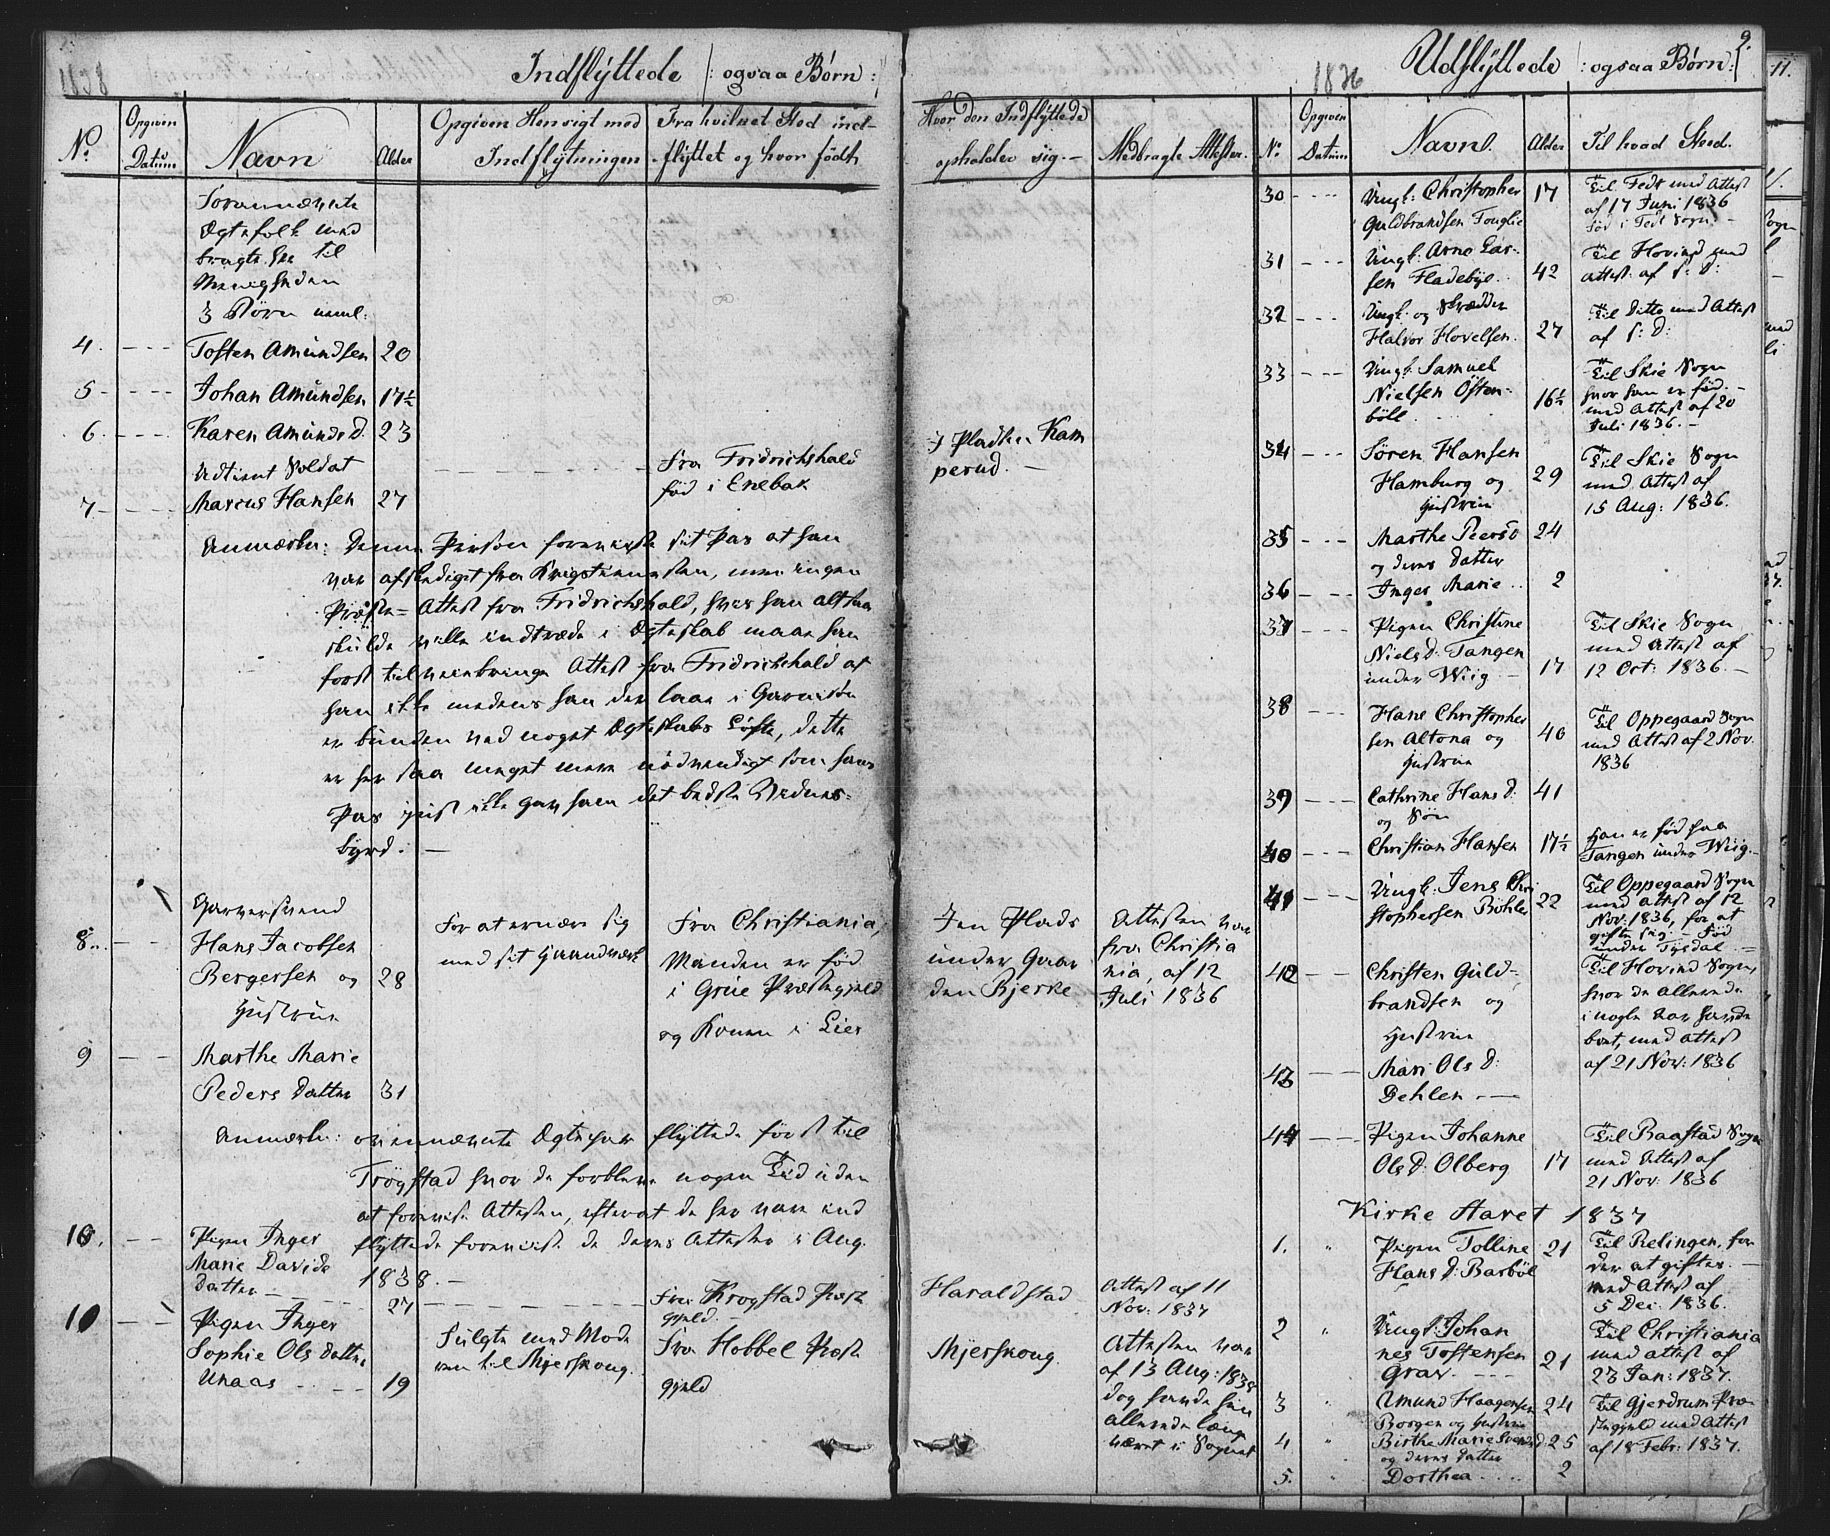 1838 Indflÿttede /: ogsaa Børn :/
No
Opgiven Datum
Navn
Alder
Opgiven Hensigt med Indflÿtningen
Fra hvilket Sted indflÿttet og hvor født
Hvor den Indflÿttede opholder sig.
Medbragte Attester.
Forannævnte
Ægtefolk med
bragte her til
Menigheden
3 Børn neml:
4 - - - Tosten Amundsen 20
5 - - - Johan Amundsen 17½
6. - - - Karen Amunds d. 23
Udtient Soldat
7 - - - Marcus Hansen 27
Fra Fridrichshald
fød i Enebak
I Pladsen Kam
perud. —
Anmærkn: Denne Person foreviiste sit Pas at han
var afskediget fra Krigstienesten, men ingen
Præste-Attest fra Fridrichshald, hvis han altsaa
skulde ville indtræde i Ægteskab maae han
først tilveiebringe Attest fra Fridrichshald at
han ikke medens han der laae i Garnison
er bunden ved noget Ægteskabs Løfte, dette
er her saa meget mere nødvendigt som hans
Pas just ikke gav ham det bedste Vidnes-
byrd. —
Garversvend
8. - - - Hans Jacobsen
Bergersen og 28
Hustrue
For at ernære sig
med sit Haandværk
Fra Christiania,
Manden er fød
i Grue Præstegjeld
og Konen i Lier
I en Plads
under Gaar
den Bjerke
Attesten var
fra Christia
nia, af 12
Juli 1836
9 - - - Marthe Marie
Peders Datter 31
Anmærkn: ovennævnte Ægtepar flÿttede først til
Trögstad hvor de forbleve nogen Tid uden
at forevise Attesten, efterat de her vare ind
flÿttede foreviiste de deres Attester i Aug.
1838. —
10. - - - Pigen Inger
Marie Davids
Datter 27
Fra Krogstad Præste
gjeld.
Haraldstad
Attest af 11
Nov: 1837
10 - - - Pigen Inger
Sophie Ols Datter
Unaas 19
Fulgte med Mode
ren til Mjerskoug.
Fra Hobbel Præste
gjeld
Mjerskoug.
Attesten var
af 13 Aug: 1838
dog havde hun
allerede længe
været i Sognet
1836 Udflÿttede /: ogsaa Børn :/
9.
No
Opgiven Datum
Navn.
Alder
Til hvad Sted.
30 - - - Ungk: Christopher 17
Guldbrandsen Tonglie
Til Fedt med Attest
af 17 Juni 1836
fød i Fedt Sogn. —
31 - - - Ungk: Arne Lar-
sen Fladebÿe 42
Til Hovind med
Attest af S: D:
32 - - - Ungk: og Skrædder
Halvor Hovelsen. 27
Til Ditto med Attest
af S: D:
33 - - - Ungk: Samuel
Nielsen Østen- 16½
böll
Til Skie Sogn
hvor han er fød. —
med Attest af 20
Juli 1836. —
34 - - - Sören Hansen
Hamburg og 29
Hustrue
Til Skie Sogn
med Attest af
15 Aug: 1836.
35 - - - Marthe Peersd 24
og deres Datter
36 - - - Inger Marie 2
37 - - - Pigen Christine
Niels d: Tangen
under Wiig — 17
Til Skie Sogn
med Attest af
12 Oct: 1836. —
38 - - - Hans Christopher
sen Altona og 40
Hustrue
Til Oppegaard Sogn
med Attest af 2 Nov.
1836
39 - - - Cathrine Hans d: 41
og Sön
40 - - - Christian Hansen 17½
Han er fød paa
Tangen under Wiig. —
41 - - - Ungk: Jens Chri
stophersen Böhler 22
Til Oppegaard Sogn
med Attest af 12
Nov: 1836, for at
gifte sig. — Fød
under Tÿsdal. —
42 - - - Christen Guld-
brandsen og
Hustrue
Til Hovind Sogn,
hvor de allerede
i nogle Aar havde
boet, med Attest
af 21 Nov: 1836
43 - - - Mari Ols d:
Dehlen. —
44 - - - Pigen Johanne
Ols d: Olberg 17
Til Baastad Sogn
med Attest af
21 Nov: 1836
Kirke Aaret 1837
1. " Pigen Tolline 21
Hans d: Barböl
Til Relingen, for
der at giftes. —
med Attest af
5 Dec: 1836.
2 " Ungk: Johan
nes Tostensen 21
Grav.
Til Christiania
med Attest af
23 Jan: 1837.
3 " Amund Haagensen 24
Borgen og Hustrue
Til Gjerdrum Præ
stegjeld med Attest
af 18 Febr: 1837.
4 " Birthe Marie Svends d. 25
og deres Datter
5. " Dorthea 2
11.